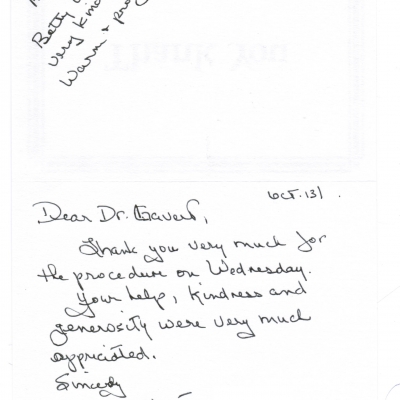 Betty
very kind
Warm + pro
Thank You
Oct. 13/ .
Dear Dr.
Thank you very much for
the procedure on Wednesday.
Your help, kindness and
generosity were very much
appriciated.
Sincerly